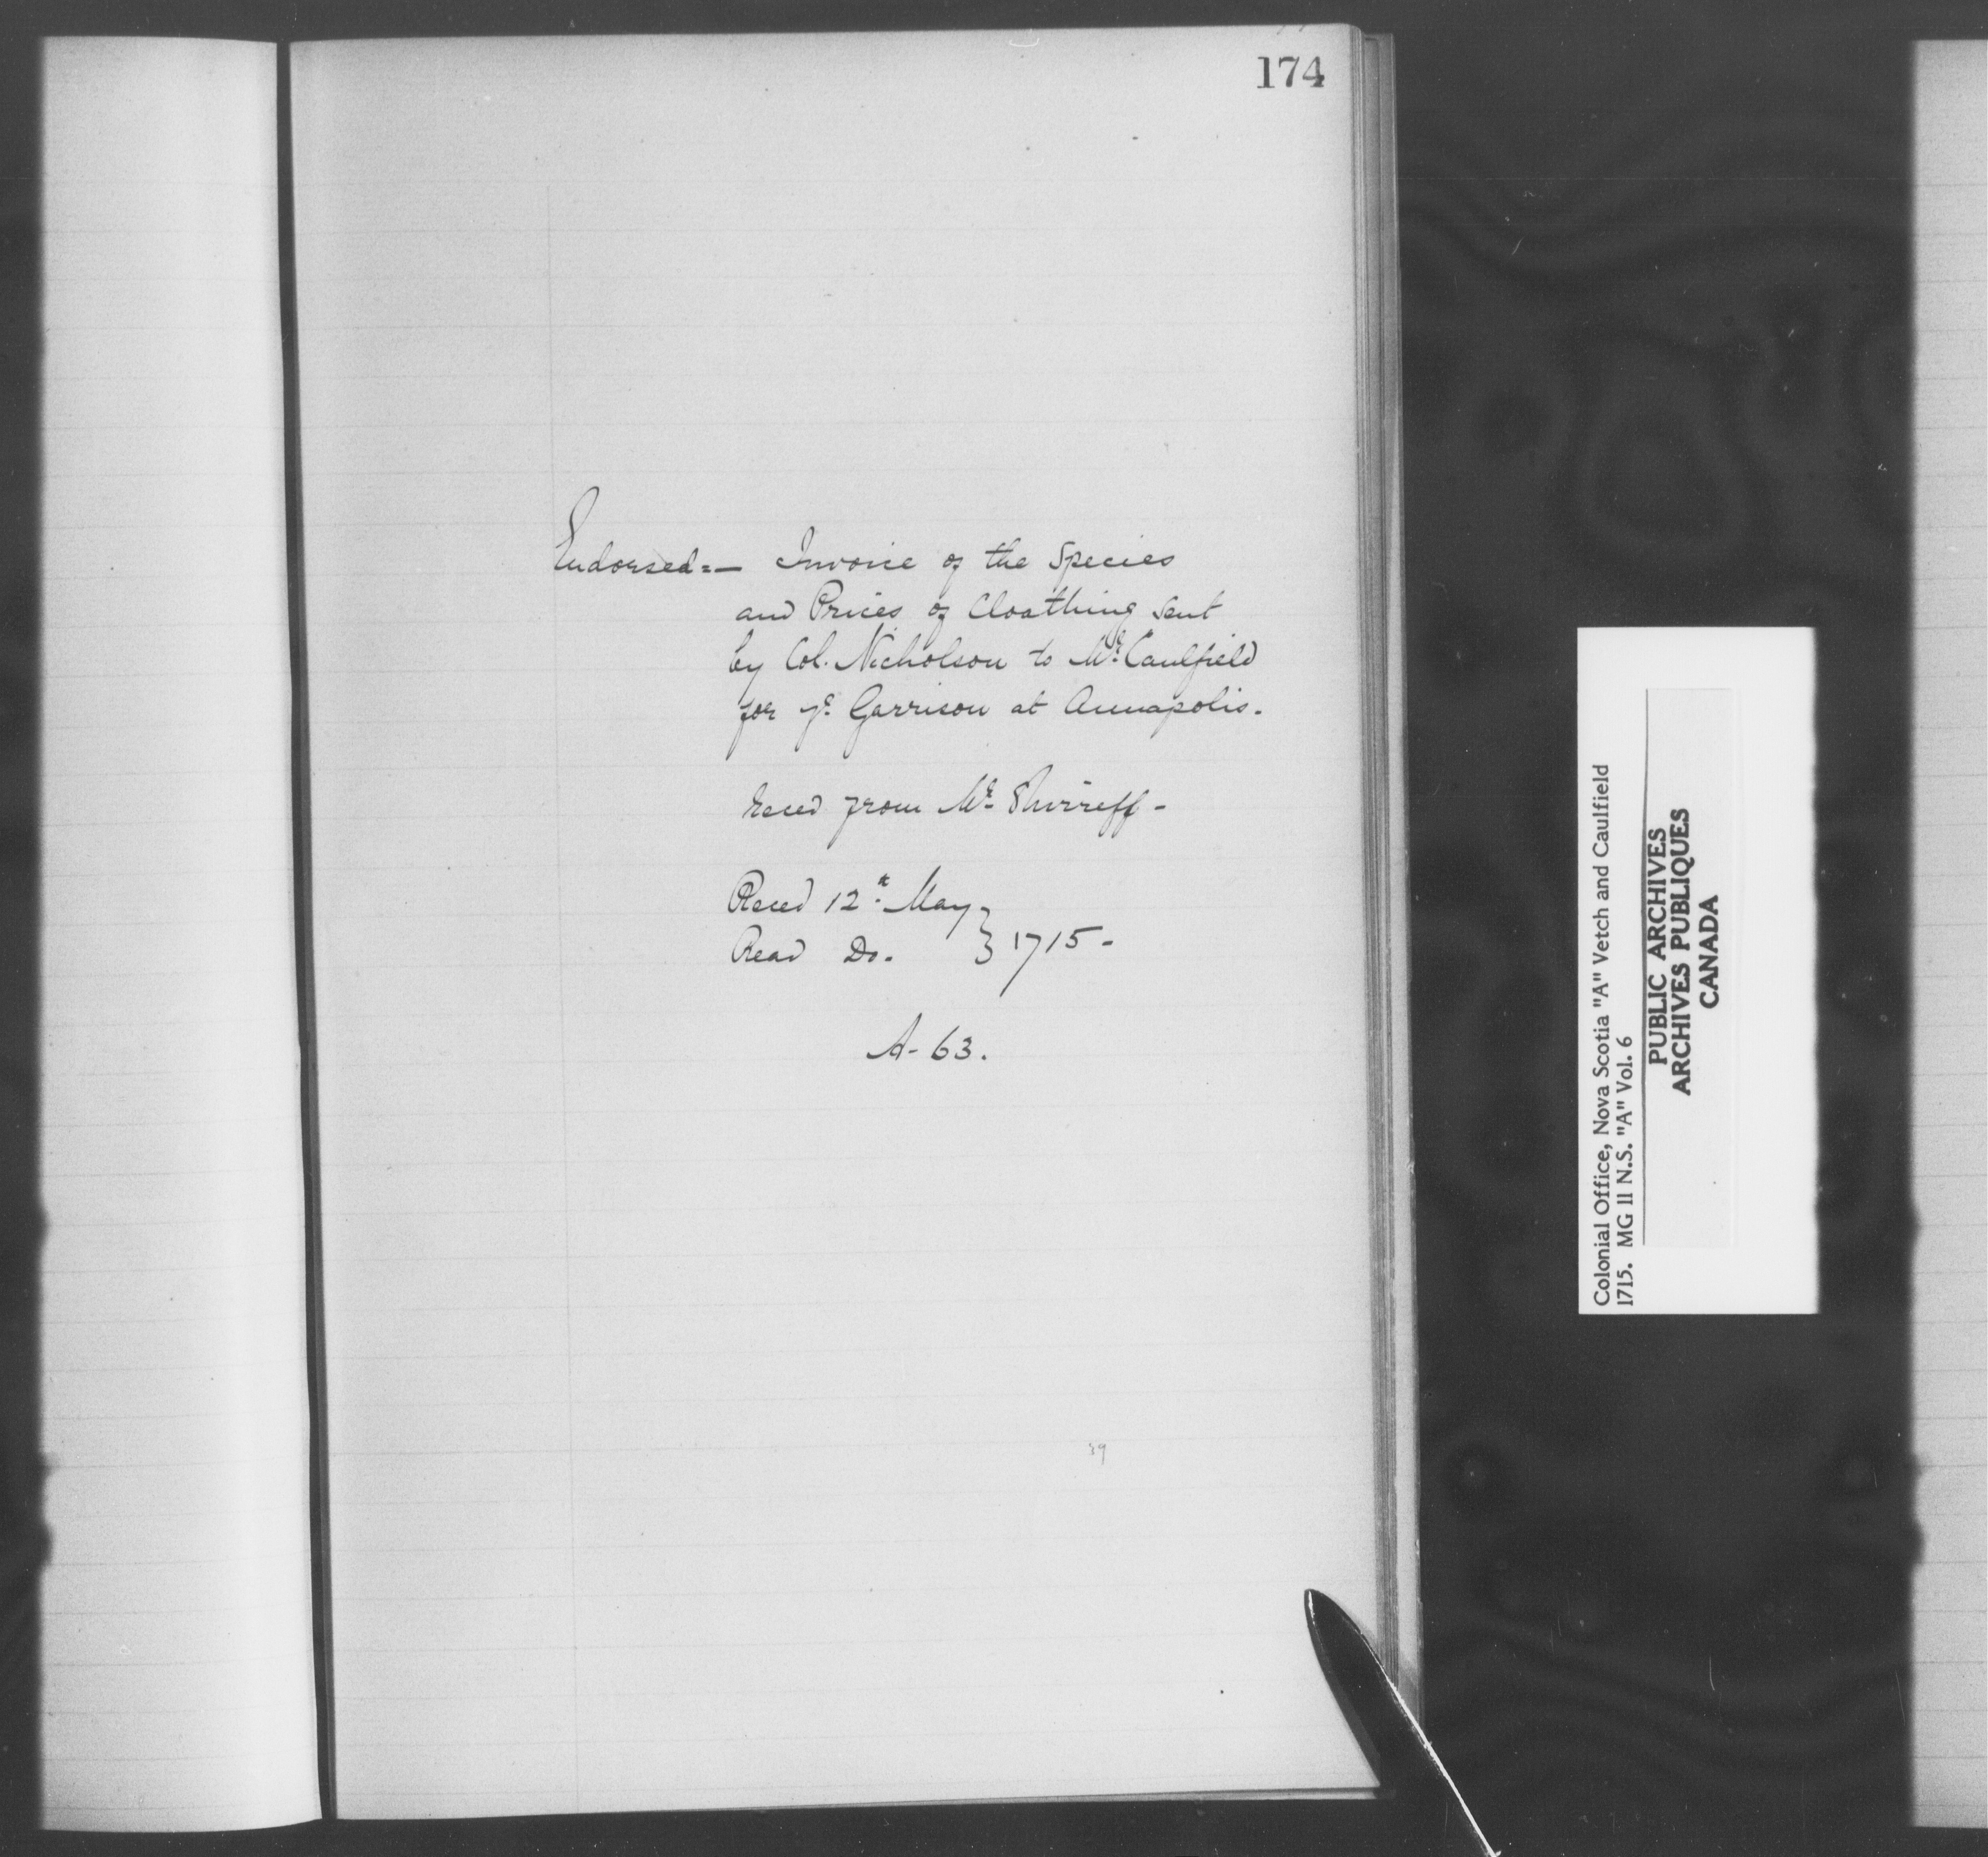 174
Endorsed:— Invoice of the Species
and Prices of Cloathing sent
by Col. Nicholson to Mr. Caulfield
for ye. Garrison at Annapolis.
reced from Mr. Shirreff-
Reced 12th. May } 1715-
Read Do.
A- 63.
39
Colonial Office, Nova Scotia "A" Vetch and Caulfield
1715. MG 11 N.S. "A" Vol. 6
PUBLIC ARCHIVES
ARCHIVES PUBLIQUES
CANADA